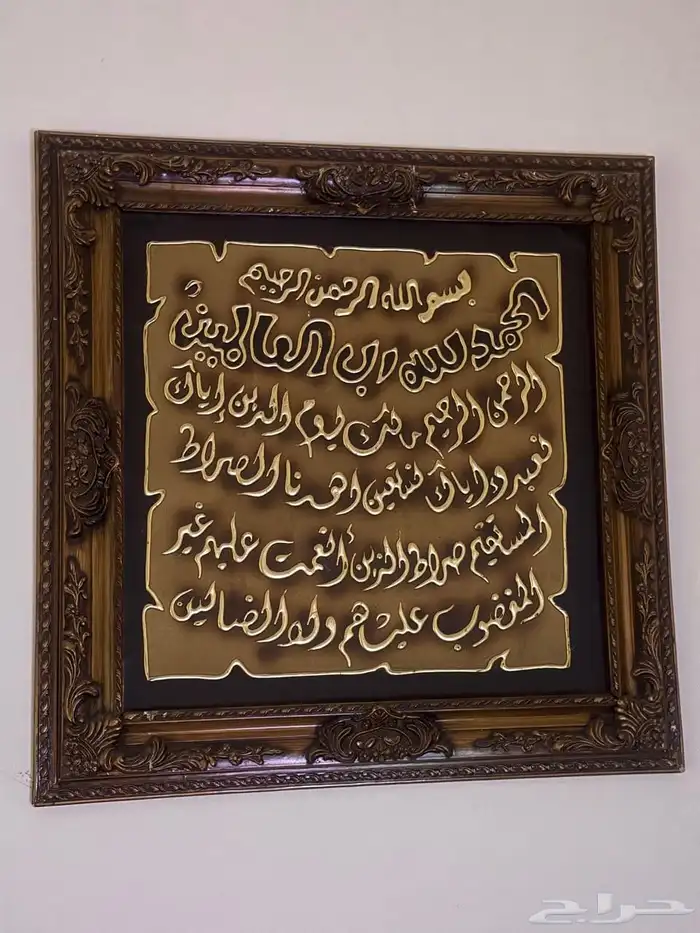 بسم الله الرحمن الرحيم
الحمد لله رب العالمين
الرحمن الرحيم مالك يوم الدين إياك
نعبد وإياك نستعين اهدنا الصراط
المستقيم صراط الذين أنعمت عليهم غير
المغضوب عليهم ولا الضالين
حراج